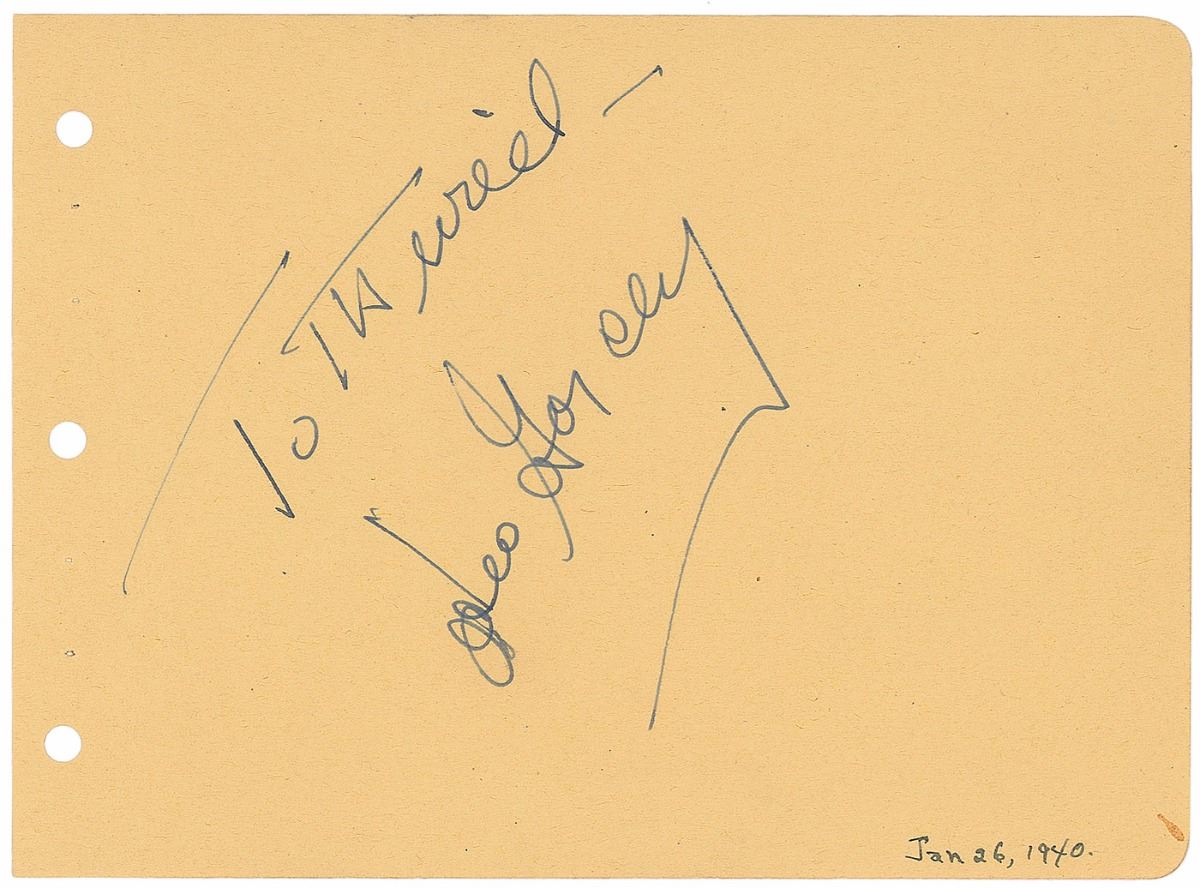 To Muriel –
Leo Gorcey
Jan 26, 1940.